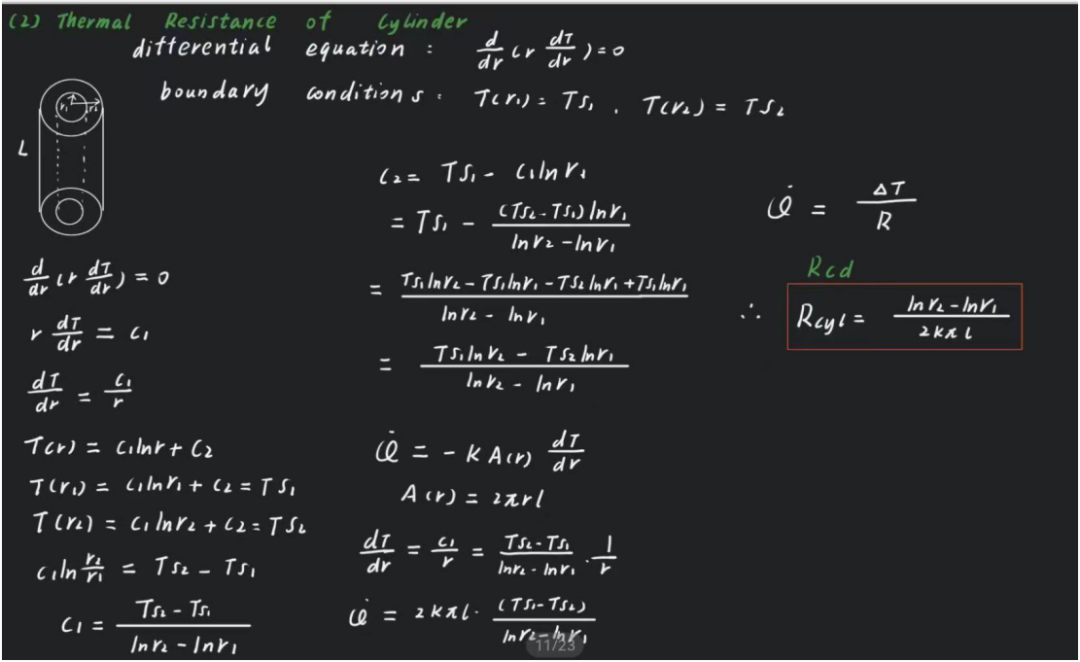 (2) Thermal Resistance of Cylinder
differential equation : d/dr (r dT/dr) = 0
boundary conditions : T(r₁) = Ts₁ , T(r₂) = Ts₂
r₁ r₂
L
d/dr (r dT/dr) = 0
r dT/dr = C₁
dT/dr = C₁/r
T(r) = C₁lnr + C₂
T(r₁) = C₁lnr₁ + C₂ = Ts₁
T(r₂) = C₁lnr₂ + C₂ = Ts₂
C₁ln r₂/r₁ = Ts₂ - Ts₁
C₁ = (Ts₂ - Ts₁)/(lnr₂ - lnr₁)
C₂ = Ts₁ - C₁lnr₁
= Ts₁ - (Ts₂-Ts₁)lnr₁/(lnr₂-lnr₁)
= (Ts₁lnr₂ - Ts₁lnr₁ - Ts₂lnr₁ + Ts₁lnr₁)/(lnr₂ - lnr₁)
= (Ts₁lnr₂ - Ts₂lnr₁)/(lnr₂ - lnr₁)
Q̇ = -KA(r) dT/dr
A(r) = 2πrl
dT/dr = C₁/r = (Ts₂-Ts₁)/(lnr₂-lnr₁) · 1/r
Q̇ = 2kπl · (Ts₁-Ts₂)/(lnr₂-lnr₁)
Q̇ = ΔT/R
Rcd
∴ Rcyl = (lnr₂-lnr₁)/(2kπl)
11/23